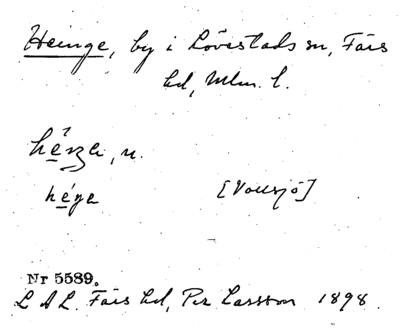 Heinge, by i Lövestads sn, Färs
hd, Mlm. l.
n.
[Vollsjö]
Nr 5589.
L A L. Färs hd, Per Larsson 1898.